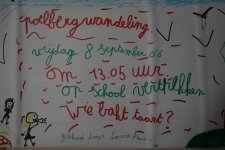 poelbergwandeling
vrijdag 8 september '06
om 13.05 uur
op school vertrekken
wie bakt taart?
getekend door